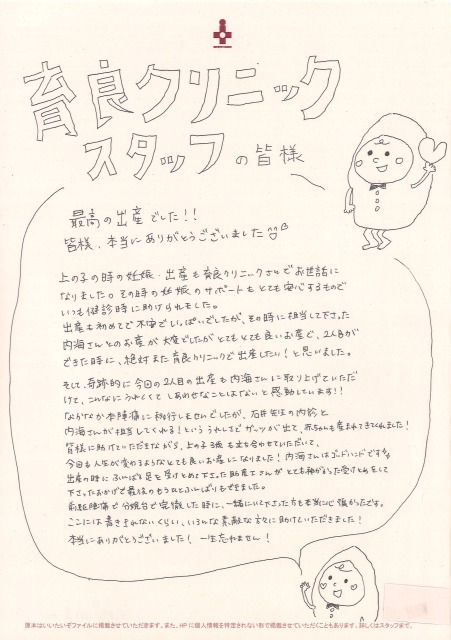 育良クリニック
スタッフの皆様
最高の出産でした!!
皆様、本当にありがとうございました
上の子の時の妊娠・出産も育良クリニックさんでお世話に
なりました。その時の妊娠のサポートもとても安心するもので
いつも健診時に助けられました。
出産も初めてで不安でいっぱいでしたが、その時に担当して下さった
内海さんとのお産が大変でしたがとてもとても良いお産で、2人目が
できた時に、絶対また育良クリニックで出産したい!と思いました。
そして、奇跡的に今回の2人目の出産も内海さんに取り上げていただ
けて、こんなにうれしくてしあわせなことはないと感動しています!!
なかなか本陣痛に移行しませんでしたが、石井先生の内診と
内海さんが担当してくれる!といううれしさでガッツが出て、赤ちゃんも産まれてきてくれました!
皆様に助けていただきながら、上の子も主人も立ち合わせていただいて、
今回も人生が変わるようなとても良いお産になりました!内海さんはゴッドハンドです
出産の時にふんばる足を受けとめて下さった助産士さんがとても神がかった受けとめをして
下さったおかげで最後のもうひとふんばりもできました。
前駆陣痛で分娩台で完徹した時に、一緒にいて下さった方も本当に心強かったです。
ここには書ききれないくらい、いろんな素敵な方々に助けていただきました!
本当にありがとうございました!一生忘れません!
原本はいいたいぞファイルに掲載させていただきます。また、HPに個人情報を特定されない形で掲載させていただくこともあります。詳しくはスタッフまで。